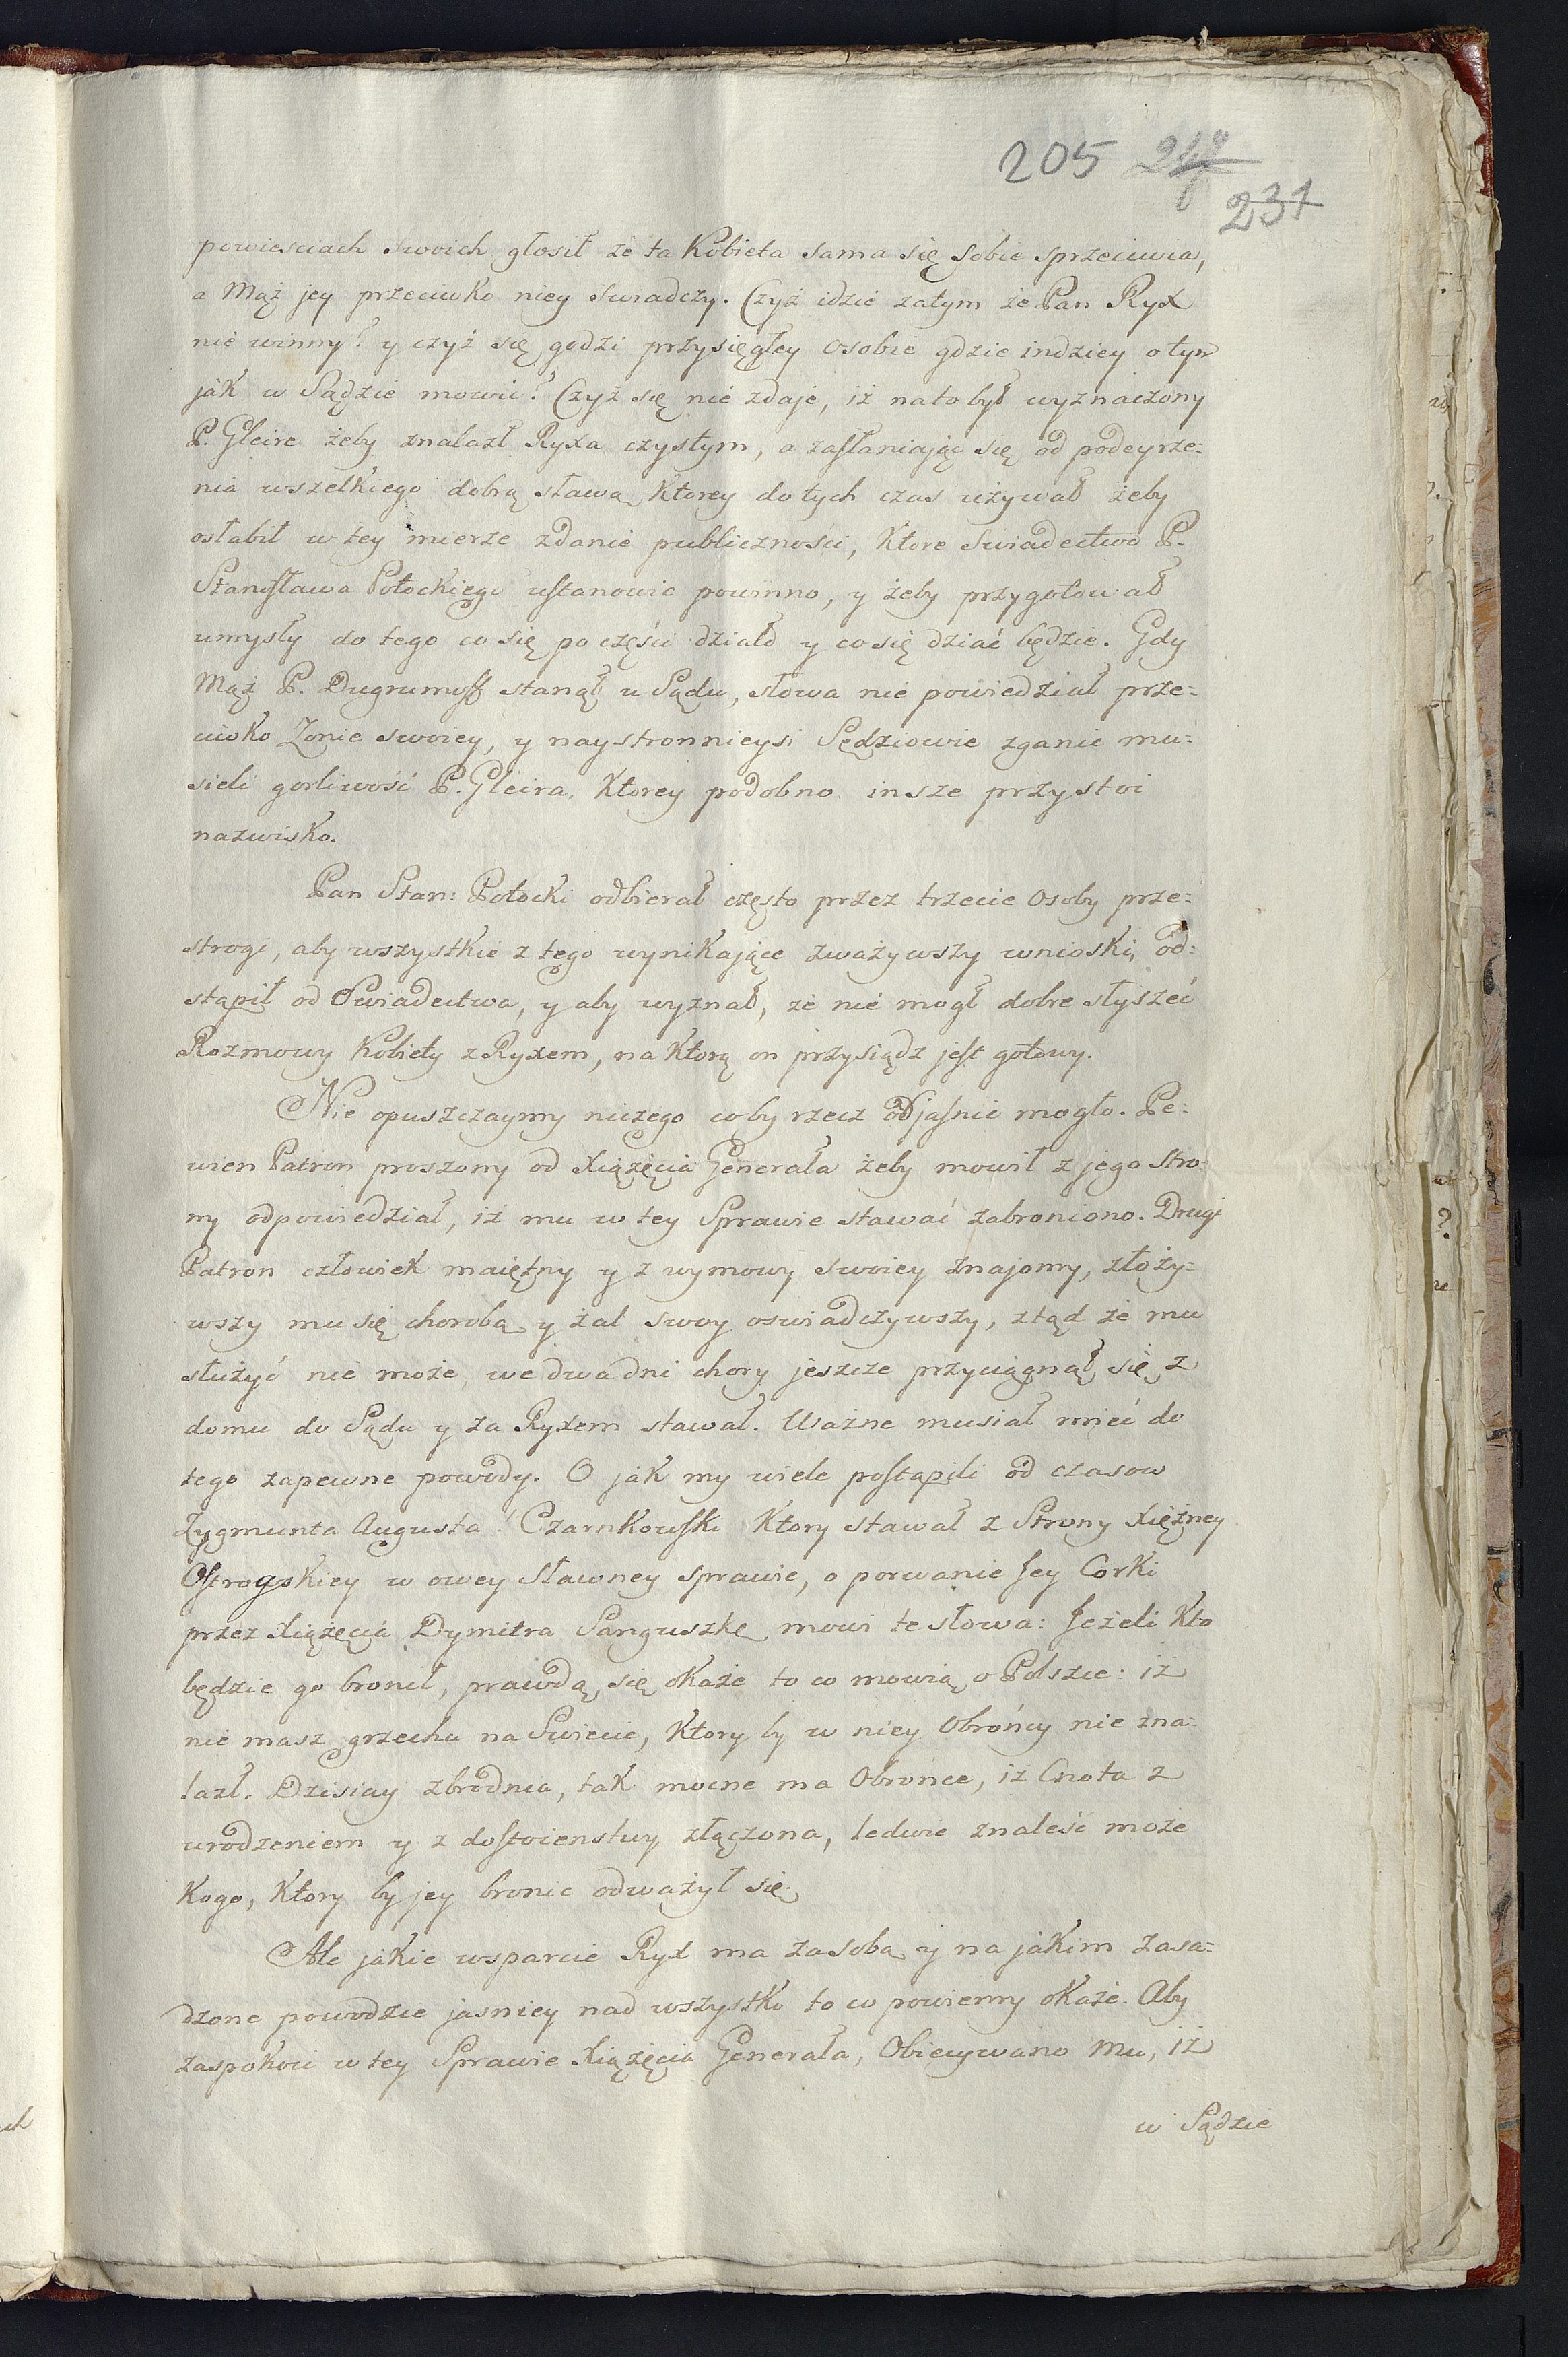 205 247
231
powiesciach swoich głosił że ta Kobieta sama się sobie sprzeciwia,
a Mąż jey przeciwko niey swiadczy. Czyż idzie zatym że Pan Ryx
nie winny? y czyż się godzi przysięgłey osobie gdzie indziey o tym
jak w Sądzie mowić? Czyż się nie zdaje, iż na to był wyznaczony
P. Gleire żeby znalazł Ryxa czystym, a zasłaniając się od podeyrze:
nia wszelkiego dobrą sławą Ktorey do tych czas używał żeby
osłabił w tey mierze zdanie publiczności, Ktore Swiadectwo P.
Stanisława Potockiego ustanowic powinno, y żeby przygotował
umysły do tego co się po części działo y co się dziać będzie. Gdy
Mąż P. Dugrumoff stanął u Sądu, słowa nie powiedział prze:
ciwko Zonie swoiey, y naystronnieysi Sędziowie zganić mu:
sieli gorliwość P. Gleira, Ktorey podobno insze przystoi
nazwisko.
Pan Stan: Potocki odbierał często przez trzecie Osoby prze:
strogi, aby wszystkie z tego wynikające zważywszy wnioski, od:
stąpił od Swiadectwa, y aby wyznał, że nie mogł dobre słyszeć
Rozmowy Kobiety z Ryxem, na Ktorą on przysiądz jest gotowy.
Nie opuszczaymy niczego coby rzecz odjasnić mogło. Pe:
wien Patron proszony od Xiążęcia Generała żeby mowił z jego stro:
ny odpowiedział, iż mu w tey Sprawie stawać zabroniono. Drugi
Patron człowiek maiętny y z wymowy swoiey znajomy, złoży=
wszy mu się chorobą y żal swoy oswiadczywszy, ztąd że mu
służyć nie może, we dwa dni chory jeszcze przyciągnął się z
domu do Sądu y za Ryxem stawał. Ważne musiał mieć do
tego zapewne powody. O jak my wiele postąpili od czasow
Zygmunta Augusta! Czarnkowski Ktory stawał z Strony Xiężney
Ostrogskiey w owey sławney sprawie, o porwanie Jey Corki
przez Xiążęcia Dymitra Sanguszkę mowi te słowa: Jeżeli Kto
będzie go bronił, prawdą się okaże to co mowią o Polszcze: iż
nie masz grzechu na Swiecie, Ktory by w niey Obrońcy nie zna:
lazł. Dzisiay zbrodnia, tak mocne ma Obronce, iż Cnota z
urodzeniem y z dostoienstwy złączona, ledwie znaleść może
Kogo, Ktory by jey bronic odważył się.
Ale jakie wsparcie Ryx ma za sobą y na jakim zasa=
dzone powodzie jasniey nad wszystko to co powiemy okaże. Aby
zaspokoić w tey Sprawie Xiążęcia Generała, Obiecywano Mu, iż
w Sądzie